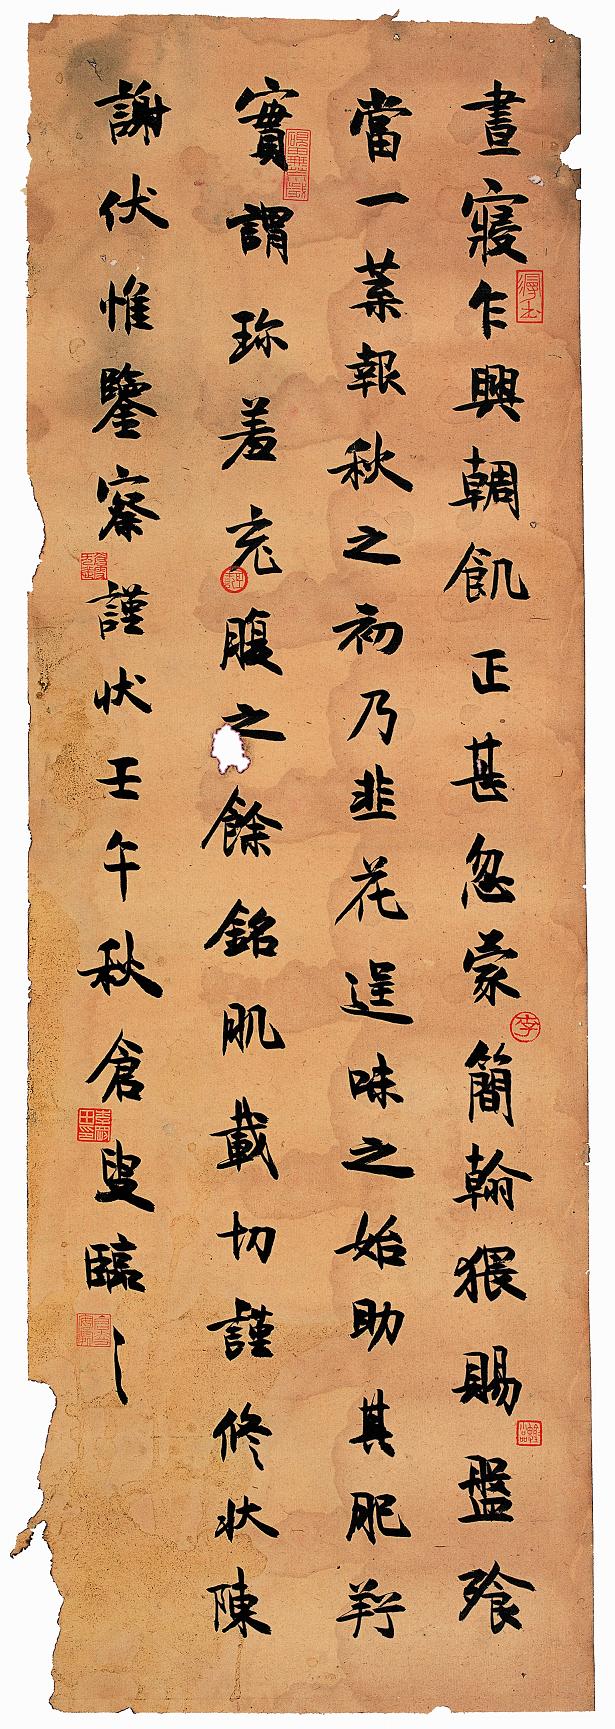 晝寢乍興輖飢正甚忽蒙簡翰猥賜盤飧
當一葉報秋之初乃韭花逞味之始助其肥羜
實謂珍羞充腹之餘銘肌載切謹修狀陳
謝伏惟鑒察謹狀壬午秋倉叟臨之
李